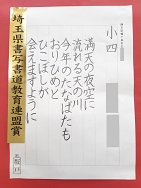 小四
満天の夜空に
流れる天の川
今年のたなばたも
おりひめと
ひこぼしが
会えますように
埼玉県書写書道教育連盟賞